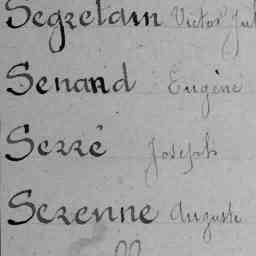 Segretain Victor
Senard Eugène
Serré Joseph
Serenne Auguste